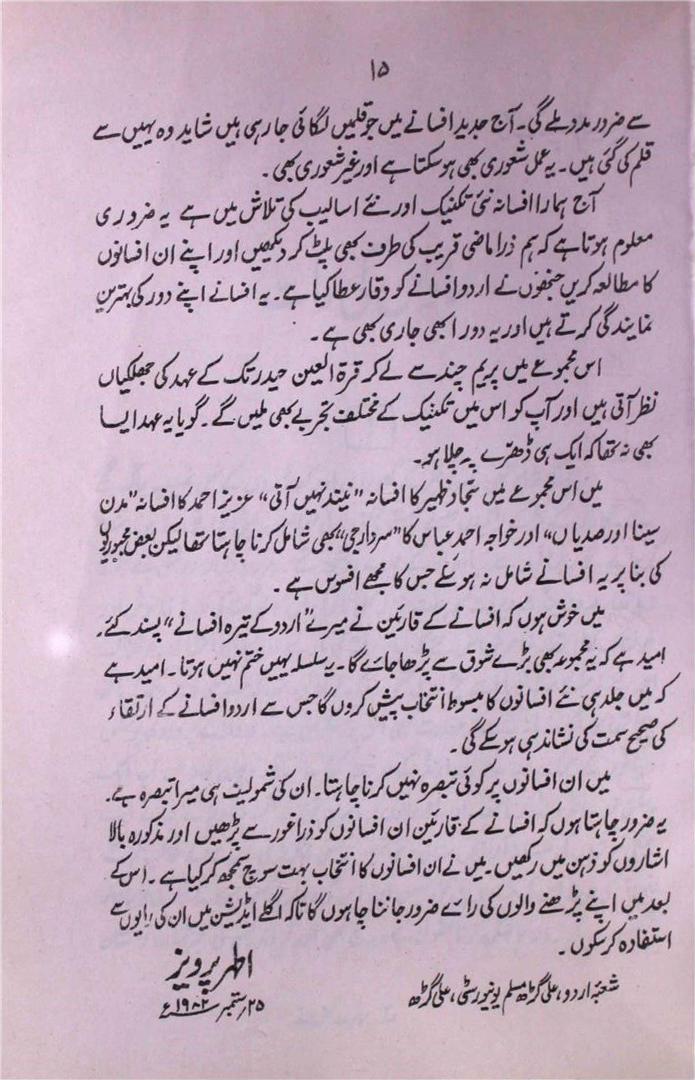 ۱۵
سے ضرور مدد ملے گی۔ آج جدید افسانے میں جو قلمیں لگائی جا رہی ہیں شاید وہ یہیں سے
قلم کی گئی ہیں۔ یہ عمل شعوری بھی ہو سکتا ہے اور غیر شعوری بھی۔
آج ہمارا افسانہ نئی تکنیک اور نئے اسالیب کی تلاش میں ہے یہ ضروری
معلوم ہوتا ہے کہ ہم ذرا ماضی قریب کی طرف بھی پلٹ کر دیکھیں اور اپنے ان افسانوں
کا مطالعہ کریں جنھوں نے اردو افسانے کو وقار عطا کیا ہے۔ یہ افسانے اپنے دور کی بہترین
نمایندگی کرتے ہیں اور یہ دور ابھی جاری بھی ہے۔
اس مجموعے میں پریم چند سے لے کر قرۃ العین حیدر تک کے عہد کی جھلکیاں
نظر آتی ہیں اور آپ کو اس میں تکنیک کے مختلف تجربے بھی ملیں گے۔ گویا یہ عہد ایسا
بھی نہ تھا کہ ایک ہی ڈھرّے پہ چلا ہو۔
میں اس مجموعے میں سجاد ظہیر کا افسانہ "نیند نہیں آتی" عزیز احمد کا افسانہ "مدن
سینا اور صدیاں" اور خواجہ احمد عباس کا "سردار جی" بھی شامل کرنا چاہتا تھا لیکن بعض مجبوریوں
کی بنا پر یہ افسانے شامل نہ ہو سکے جس کا مجھے افسوس ہے۔
میں خوش ہوں کہ افسانے کے قارئین نے میرے "اردو کے تیرہ افسانے" پسند کئے۔
امید ہے کہ یہ مجموعہ بھی بڑے شوق سے پڑھا جائے گا۔ یہ سلسلہ یہیں ختم نہیں ہوتا۔ امید ہے
کہ میں جلد ہی نئے افسانوں کا مبسوط انتخاب پیش کروں گا جس سے اردو افسانے کے ارتقاء
کی صحیح سمت کی نشاندہی ہو سکے گی۔
میں ان افسانوں پر کوئی تبصرہ نہیں کرنا چاہتا۔ ان کی شمولیت ہی میرا تبصرہ ہے۔
یہ ضرور چاہتا ہوں کہ افسانے کے قارئین ان افسانوں کو ذرا غور سے پڑھیں اور مذکورہ بالا
اشاروں کو ذہن میں رکھیں۔ میں نے ان افسانوں کا انتخاب بہت سوچ سمجھ کر کیا ہے۔ اس کے
بعد میں اپنے پڑھنے والوں کی رائے ضرور جاننا چاہوں گا تاکہ اگلے ایڈیشن میں ان کی رایوں سے
استفادہ کر سکوں۔
اطہر پرویز
شعبۂ اردو، علی گڑھ مسلم یونیورسٹی، علی گڑھ
۲۵؍ ستمبر ۱۹۸۲ء